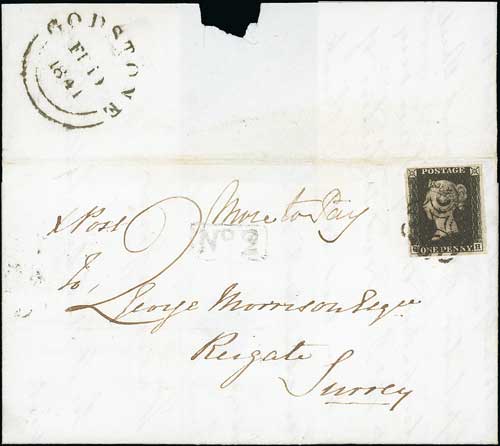 GODSTONE
1841
POSTAGE
ONE PENNY
H
x Post
More to Pay
No 2
To,
George Morrison Esqre
Reigate
Surrey